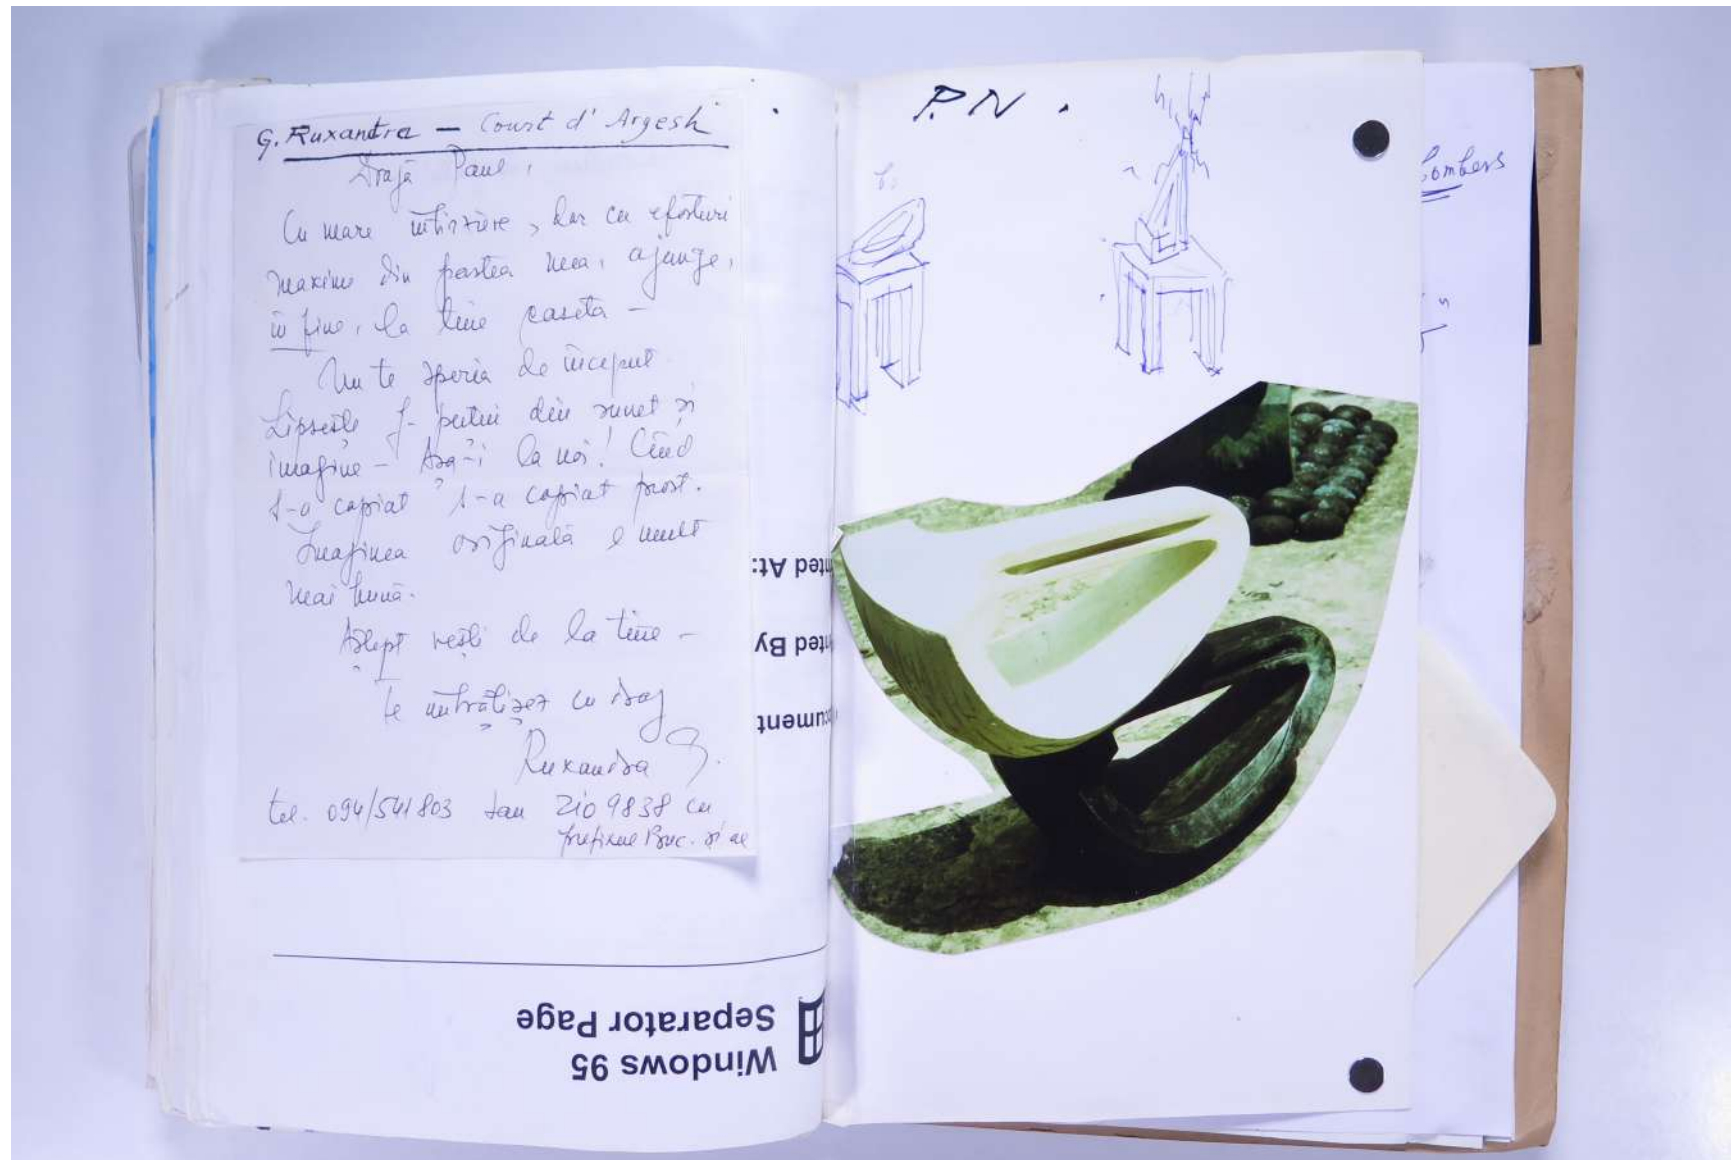 G. Ruxandra — Court d'Argesh
Dragă Paul,
Cu mare întîrziere, dar cu eforturi
maxime din partea mea, ajunge,
în fine, la tine caseta -
Nu te speria de început
Lipsește f. puțin din sunet și
imagine - Așa-i la noi! Cînd
s-a copiat s-a copiat prost.
Imaginea originală e mult
mai bună.
Aștept vești de la tine -
Te îmbrățișez cu drag
Ruxandra G.
tel. 094/541803 sau 210 9838 cu
prefixul Buc. și al
nted At:
nted By
cument
Windows 95
Separator Page
P.N.